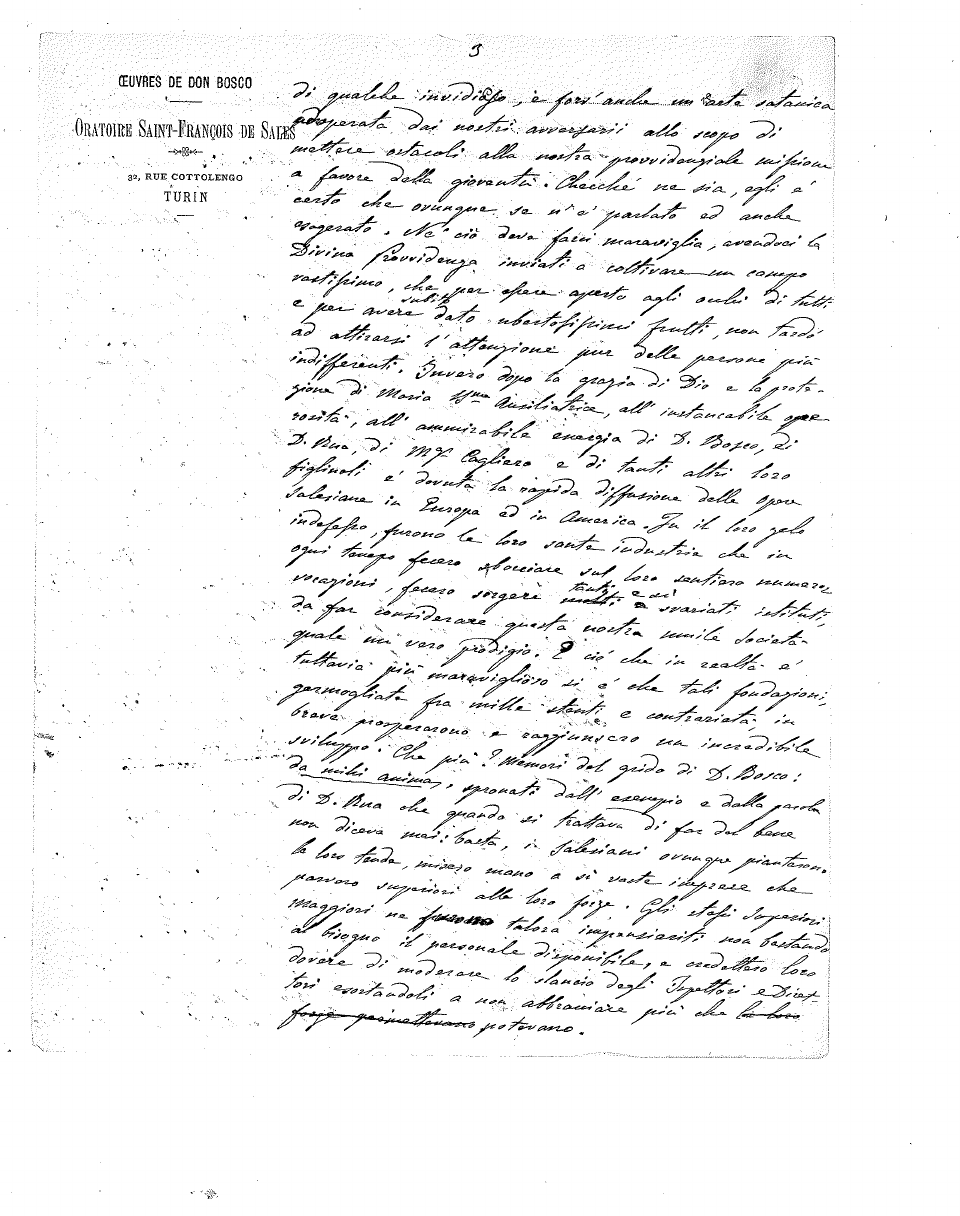 3
ŒUVRES DE DON BOSCO
ORATOIRE SAINT-FRANÇOIS DE SALES
32, RUE COTTOLENGO
TURIN
di qualche invidioso, e fors'anche un'arte satanica
adoperata dai nostri avversarii allo scopo di
mettere ostacoli alla nostra provvidenziale missione
a favore della gioventù. Checché ne sia, egli è
certo che ovunque se n'è parlato ed anche
esagerato. Nè ciò deve farci maraviglia, avendoci la
Divina Provvidenza inviati a coltivare un campo
vastissimo, che per essere aperto agli occhi di tutti
e per avere subito dato ubertosissimi frutti, non tardò
ad attirarsi l'attenzione pur delle persone più
indifferenti. Invero dopo la grazia di Dio e la prote-
zione di Maria SSma Ausiliatrice, all'instancabile ope-
rosità, all'ammirabile energia di D. Bosco, di
D. Rua, di Mgr Cagliero e di tanti altri loro
figliuoli è dovuta la rapida diffusione delle Opere
Salesiane in Europa ed in America. Fu il loro zelo
indefesso, furono le loro sante industrie che in
ogni tempo fecero sbocciare sul loro sentiero numerose
vocazioni, fecero sorgere tanti e sì svariati istituti,
da far considerare questa nostra umile Società
quale un vero prodigio. E ciò che in realtà è
tuttavia più maraviglioso si è che tali fondazioni,
germogliate fra mille stenti e contrarietà, in
breve prosperarono e raggiunsero un incredibile
sviluppo. Che più? Memori del grido di D. Bosco:
da mihi animas, spronati dall'esempio e dalla parola
di D. Rua che quando si trattava di far del bene
non diceva mai: basta, i Salesiani ovunque piantarono
le loro tende, misero mano a sì vaste imprese che
parvero superiori alle loro forze. Gli stessi Superiori
Maggiori ne furono talora impensieriti non bastando
al bisogno il personale disponibile, e credettero loro
dovere di moderare lo slancio degli Ispettori e Diret-
tori esortandoli a non abbracciare più che la loro
forze permettevano potevano.